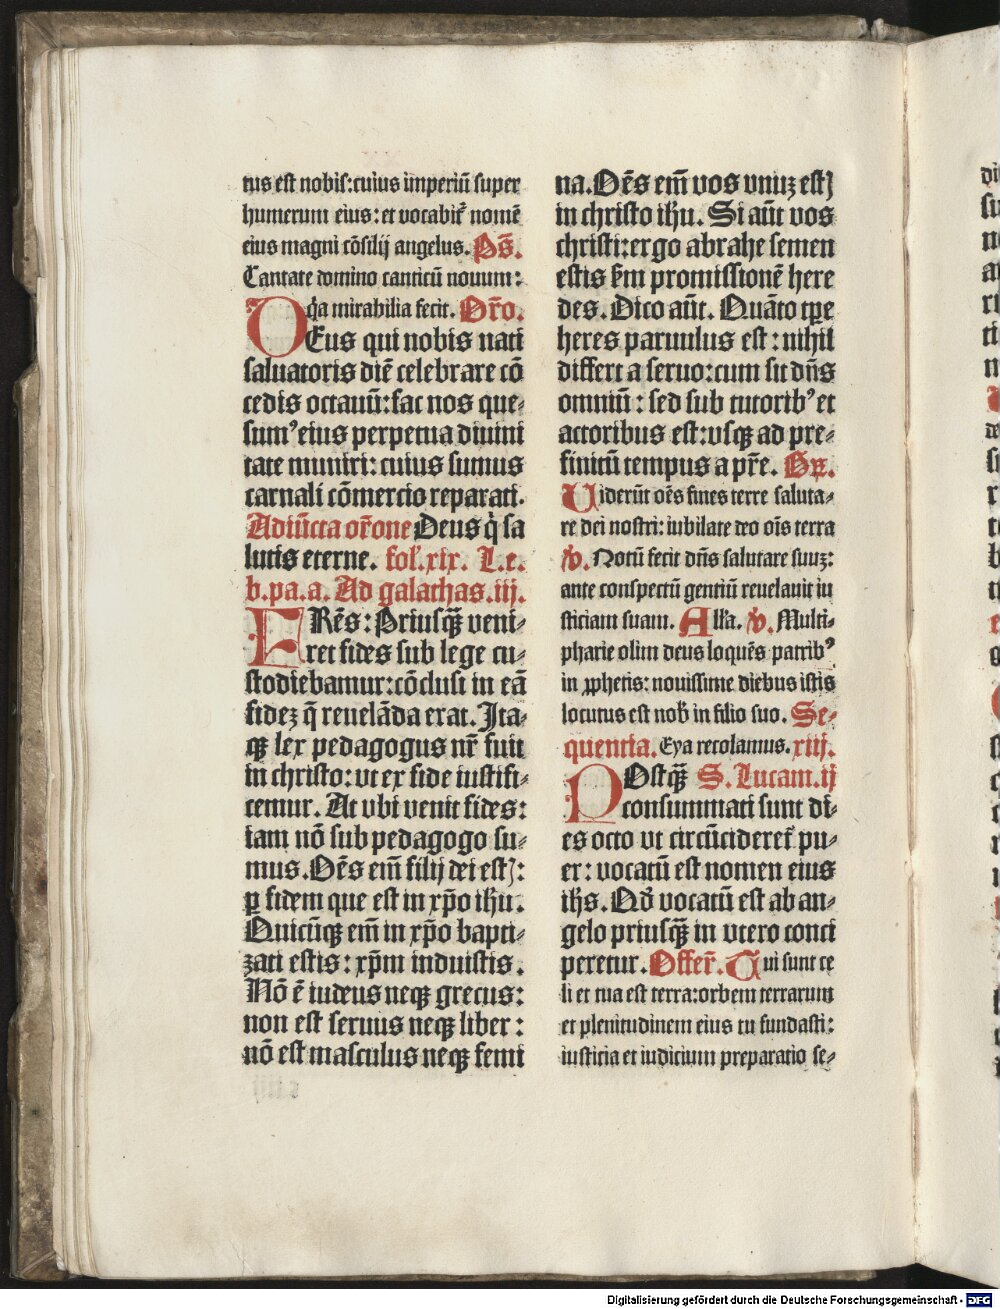 tus est nobis: cuius imperiū super
humerum eius: et vocabit᷑ nomē
eius magni cōsilij angelus. Ps̄.
Cantate domino canticū nouum:
q̇a mirabilia fecit. Or̄o.
DEus qui nobis nati
saluatoris diē celebrare cō
cedis octauū: fac nos que⸗
sumꝰ eius perpetua diuini
tate muniri: cuius sumus
carnali cōmercio reparati.
Adiūcta or̄one Deus q̇ sa
lutis eterne. fol̕. xix. L. e.
b. pa. a. Ad galathas. iij.
FRēs: Priusq̄ꝫ veni⸗
ret fides sub lege cu⸗
stodiebamur: cōclusi in eā
fidez q̄ reuelāda erat. Ita⸗
qꝫ lex pedagogus nr̄ fuit
in christo: vt ex fide iustifi⸗
cemur. At vbi venit fides:
iam nō sub pedagogo su⸗
mus. Om̄s em̄ filij dei estꝭ:
ꝑ fidem que est in xp̄o ihū.
Quicūqꝫ em̄ in xp̄o bapti⸗
zati estis: xp̄m induistis.
Nō ē iudeus neqꝫ grecus:
non est seruus neqꝫ liber:
nō est masculus neqꝫ femi
na. Om̄s em̄ vos vnuz estꝭ
in christo ihū. Si aūt vos
christi: ergo abrahe semen
estis s̄m promissionē here
des. Dico aūt. Quāto tꝑe
heres paruulus est: nihil
differt a seruo: cum sit dn̄s
omniū: sed sub tutoribꝰ et
actoribus est: vsqꝫ ad pre⸗
finitū tempus a pr̄e. Gꝛ.
Uiderūt oēs fines terre saluta⸗
re dei nostri: iubilate deo oīs terra
v̇. Notū fecit dn̄s salutare suuz:
ante conspectū gentiū reuelauit iu
sticiam suam. All̕a. v̇. Multi⸗
pharie olim deus loquēs patribꝰ
in ꝓphetis: nouissime diebus istis
locutus est nob̕ in filio suo. Se⸗
quentia. Eya recolamus. xiij.
POstq̄ꝫ S. Lucam. ij
consummati sunt di⸗
es octo vt circūcideret᷑ pu⸗
er: vocatū est nomen eius
ihs̄. Qd̕ vocatū est ab an⸗
gelo priusq̄ꝫ in vtero conci
peretur. Offer̄. Tui sunt ce
li et tua est terra: orbem terrarum
et plenitudinem eius tu fundasti:
iusticia et iudicium preparatio se⸗
Digitalisierung gefördert durch die Deutsche Forschungsgemeinschaft - DFG